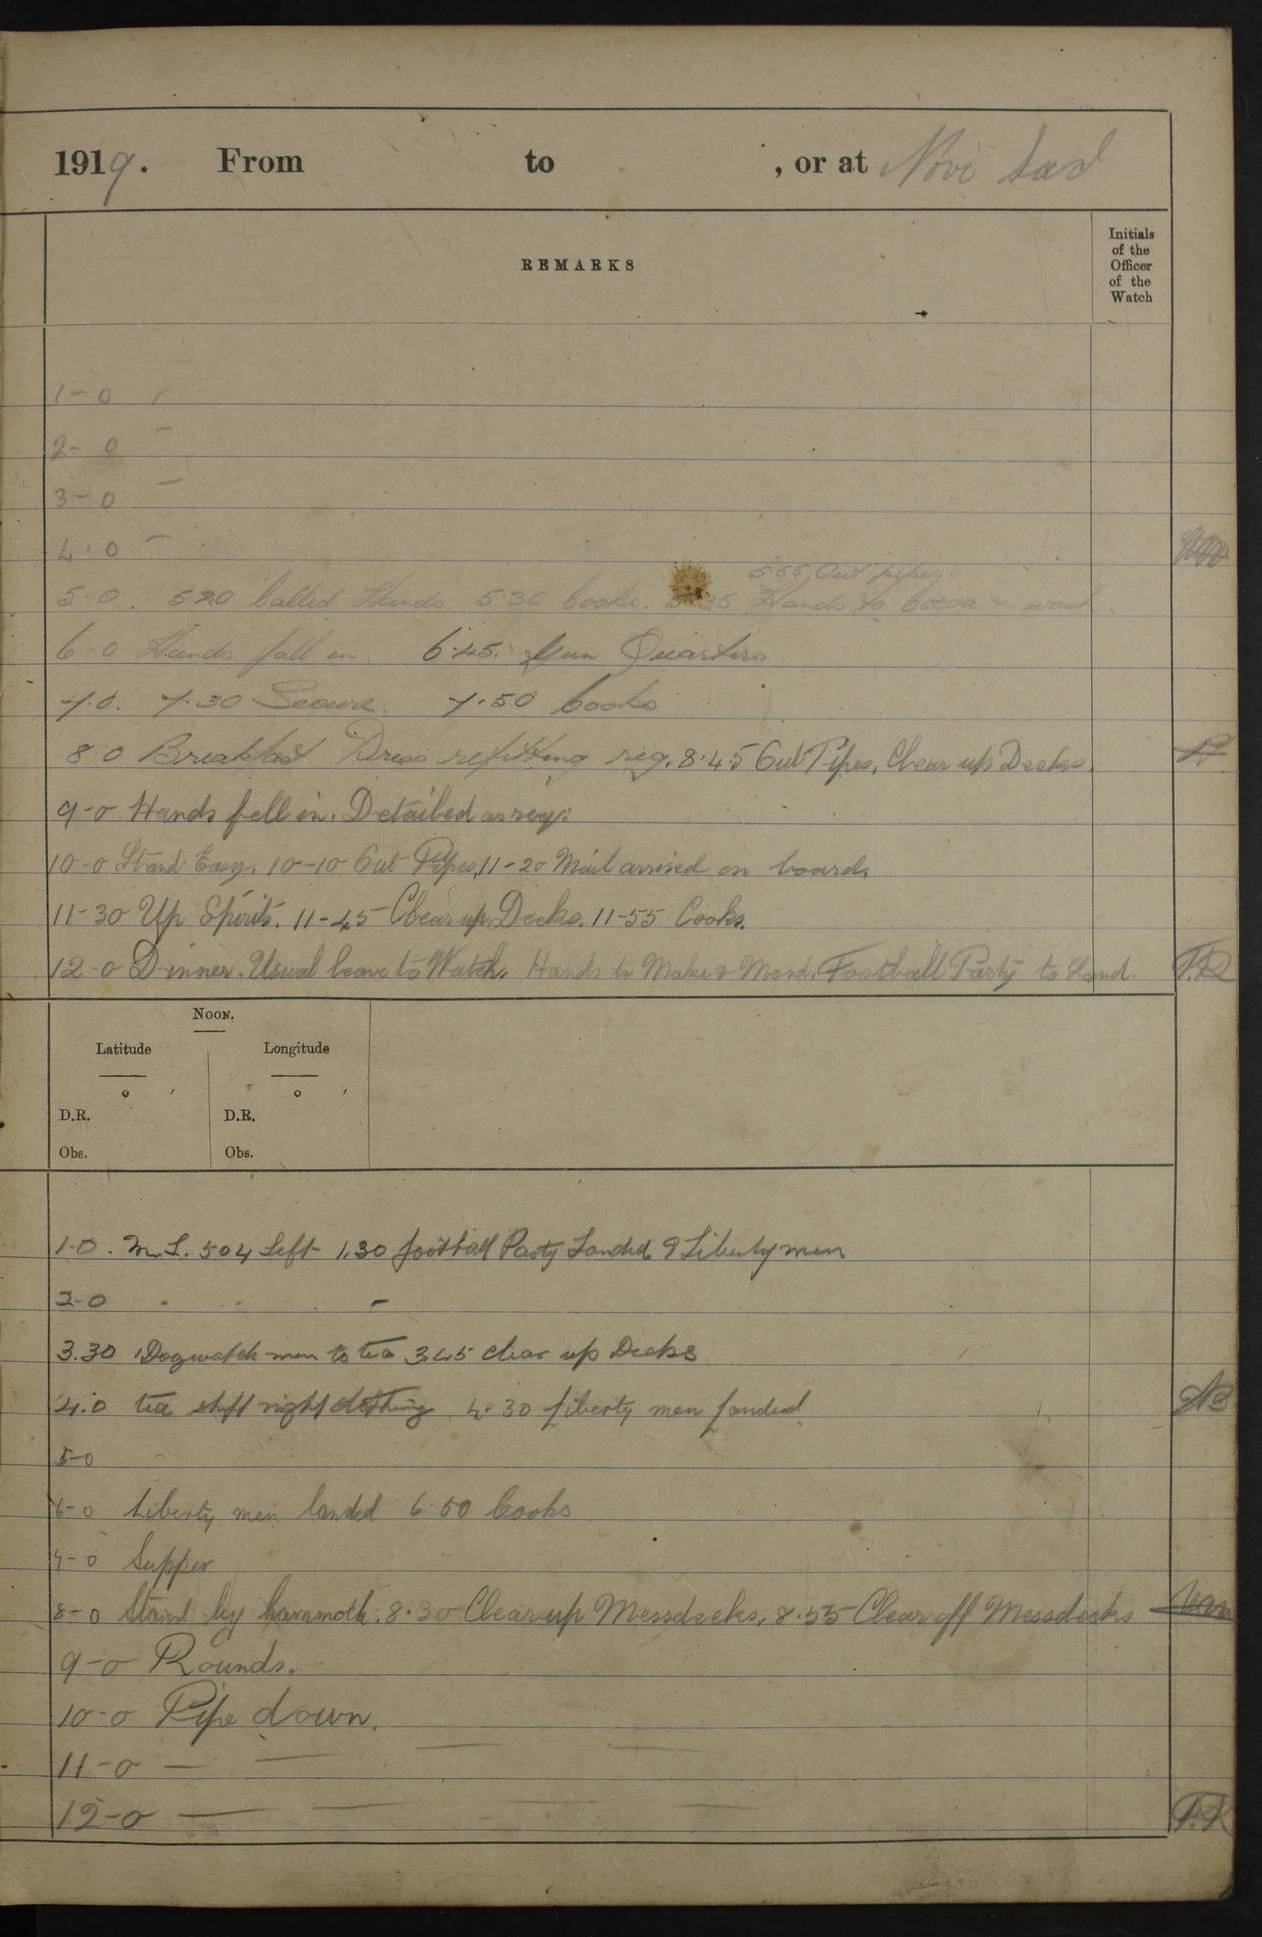 1919. From to , or at Novi Sad
REMARKS
Initials
of the
Officer
of the
Watch
1-0
2-0 -
3-0 -
4.0 -
5.55 Out pipes
5.0. 520 Called Hands 5.30 Cooks. 5.35 Hands to Cocoa & wash
6-0 Hands fall in 6.45. Gun Quarters
7.0. 7.30 Secure. 7.50 Cooks
8.0 Breakfast Dress refitting rig. 8.45 Out Pipes, Clear up Decks.
9-0 Hands fell in. Detailed as req:
10-0 Stand Easy. 10-10 Out Pipes, 11-20 Mail arrived on board.
11-30 Up Spirits. 11-45 Clear up Decks. 11-55 Cooks.
12-0 Dinner. Usual leave to Watch. Hands to Make & Mend. Football Party to Land. T.R
NOON.
Latitude Longitude
° ′ ° ′
D.R. D.R.
Obs. Obs.
1-0. M.L. 504 Left 1.30 football Party Landed & Liberty men
2-0 - - -
3.30 Dogwatch men to tea 3.45 clear up Decks
4.0 tea shift night clothing 4.30 liberty men landed
5-0
6-0 Liberty men landed 6.50 Cooks
7-0 Supper
8-0 Stand by hammock. 8.30 Clear up Messdecks, 8.55 Clear off Messdecks
9-0 Rounds.
10-0 Pipe down.
11-0 — — — —
12-0 — — — — T.R